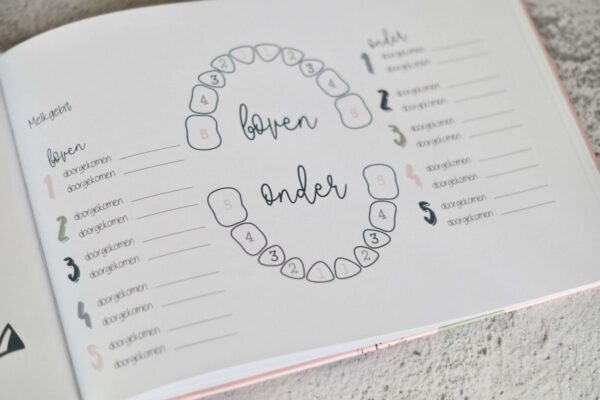 Melkgebit
boven
1 doorgekomen
doorgekomen
2 doorgekomen
doorgekomen
3 doorgekomen
doorgekomen
4 doorgekomen
doorgekomen
5 doorgekomen
doorgekomen
5 4 3 2 1 1 2 3 4 5
boven
onder
5 4 3 2 1 1 2 3 4 5
onder
1 doorgekomen
doorgekomen
2 doorgekomen
doorgekomen
3 doorgekomen
doorgekomen
4 doorgekomen
doorgekomen
5 doorgekomen
doorgekomen